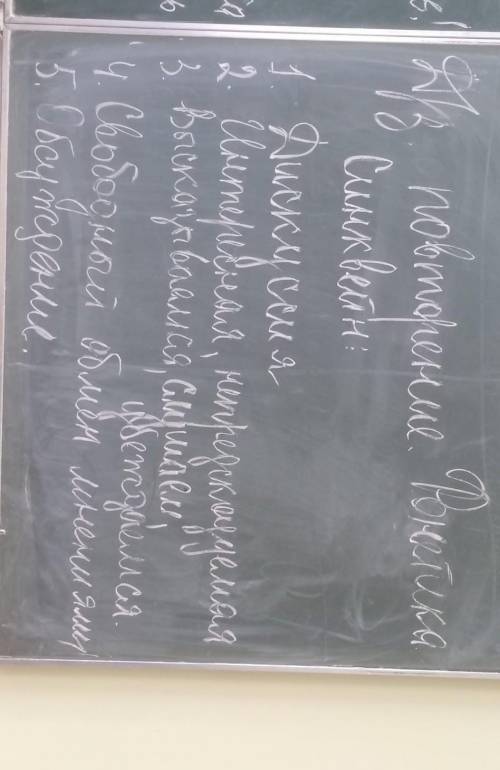 Д/З. повторение. Фонетика
Синквейн:
Дискуссия
1. Интересная, непредсказуемая
2. Высказываемся, слышаем,
3. убеждаемся.
4. Свободный обмен мнениями
5. Обсуждение.